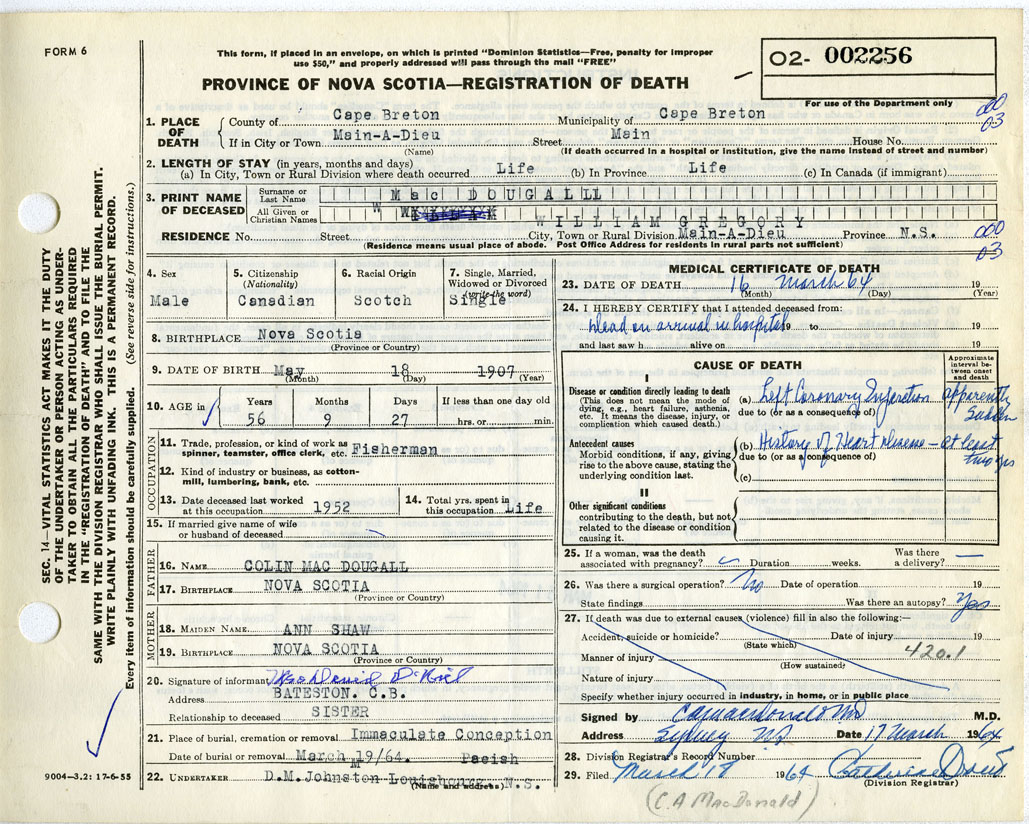 FORM 6
This form, if placed in an envelope, on which is printed "Dominion Statistics—Free, penalty for improper
use $50," and properly addressed will pass through the mail "FREE"
PROVINCE OF NOVA SCOTIA—REGISTRATION OF DEATH
O2- 002256
For use of the Department only
000
03
1. PLACE OF DEATH
County of Cape Breton Municipality of Cape Breton
If in City or Town Main-A-Dieu Street Main House No.
(Name) (If death occurred in a hospital or institution, give the name instead of street and number)
2. LENGTH OF STAY (in years, months and days)
(a) In City, Town or Rural Division where death occurred Life (b) In Province Life (c) In Canada (if immigrant)
3. PRINT NAME OF DECEASED
Surname or Last Name Mac DOUGALL
All Given or Christian Names W
WILLIAM GREGORY
RESIDENCE No. Street City, Town or Rural Division Main-A-Dieu Province N.S.
(Residence means usual place of abode. Post Office Address for residents in rural parts not sufficient)
000
03
4. Sex
Male
5. Citizenship
(Nationality)
Canadian
6. Racial Origin
Scotch
7. Single, Married,
Widowed or Divorced
(write the word)
Single
8. BIRTHPLACE Nova Scotia
(Province or Country)
9. DATE OF BIRTH May 18 1907
(Month) (Day) (Year)
10. AGE in
Years Months Days If less than one day old
56 9 27 hrs. or min.
OCCUPATION
11. Trade, profession, or kind of work as
spinner, teamster, office clerk, etc. Fisherman
12. Kind of industry or business, as cotton-
mill, lumbering, bank, etc.
13. Date deceased last worked
at this occupation 1952
14. Total yrs. spent in
this occupation Life
15. If married give name of wife
or husband of deceased
FATHER
16. NAME COLIN MAC DOUGALL
17. BIRTHPLACE NOVA SCOTIA
(Province or Country)
MOTHER
18. MAIDEN NAME ANN SHAW
19. BIRTHPLACE NOVA SCOTIA
(Province or Country)
20. Signature of informant
Address BATESTON. C.B.
Relationship to deceased SISTER
21. Place of burial, cremation or removal Immaculate Conception
Date of burial or removal March 19/64. Parish
22. UNDERTAKER D.M. Johnston Louisbourg, N.S.
(Name and address)
MEDICAL CERTIFICATE OF DEATH
23. DATE OF DEATH 16 March 64 19
(Month) (Day) (Year)
24. I HEREBY CERTIFY that I attended deceased from:
Dead on arrival in hospital 19 to 19
and last saw h alive on 19
CAUSE OF DEATH
Approximate
interval be-
tween onset
and death
I
Disease or condition directly leading to death
(This does not mean the mode of
dying, e.g., heart failure, asthenia,
etc. It means the disease, injury, or
complication which caused death.)
(a) Left Coronary Infarction apparently
due to (or as a consequence of) sudden
Antecedent causes
Morbid conditions, if any, giving
rise to the above cause, stating the
underlying condition last.
(b) History of Heart Disease - at least
due to (or as a consequence of) two yrs
(c)
II
Other significant conditions
contributing to the death, but not
related to the disease or condition
causing it.
25. If a woman, was the death
associated with pregnancy? Duration weeks. Was there
a delivery? —
26. Was there a surgical operation? No Date of operation 19
State findings Was there an autopsy? Yes
27. If death was due to external causes (violence) fill in also the following:—
Accident, suicide or homicide? Date of injury 19
(State which)
Manner of injury 420.1
(How sustained)
Nature of injury
Specify whether injury occurred in industry, in home, or in public place
Signed by CA MacDonald MD M.D.
Address Sydney NS Date 17 March 1964
28. Division Registrar's Record Number
29. Filed March 18 1964
(Division Registrar)
(C.A MacDonald)
SEC. 14—VITAL STATISTICS ACT MAKES IT THE DUTY
OF THE UNDERTAKER OR PERSON ACTING AS UNDER-
TAKER TO OBTAIN ALL THE PARTICULARS REQUIRED
IN THE "REGISTRATION OF DEATH" AND TO FILE THE
SAME WITH THE DIVISION REGISTRAR WHO SHALL ISSUE THE BURIAL PERMIT.
WRITE PLAINLY WITH UNFADING INK. THIS IS A PERMANENT RECORD.
Every item of information should be carefully supplied. (See reverse side for instructions.)
9004—3.2: 17-6-55